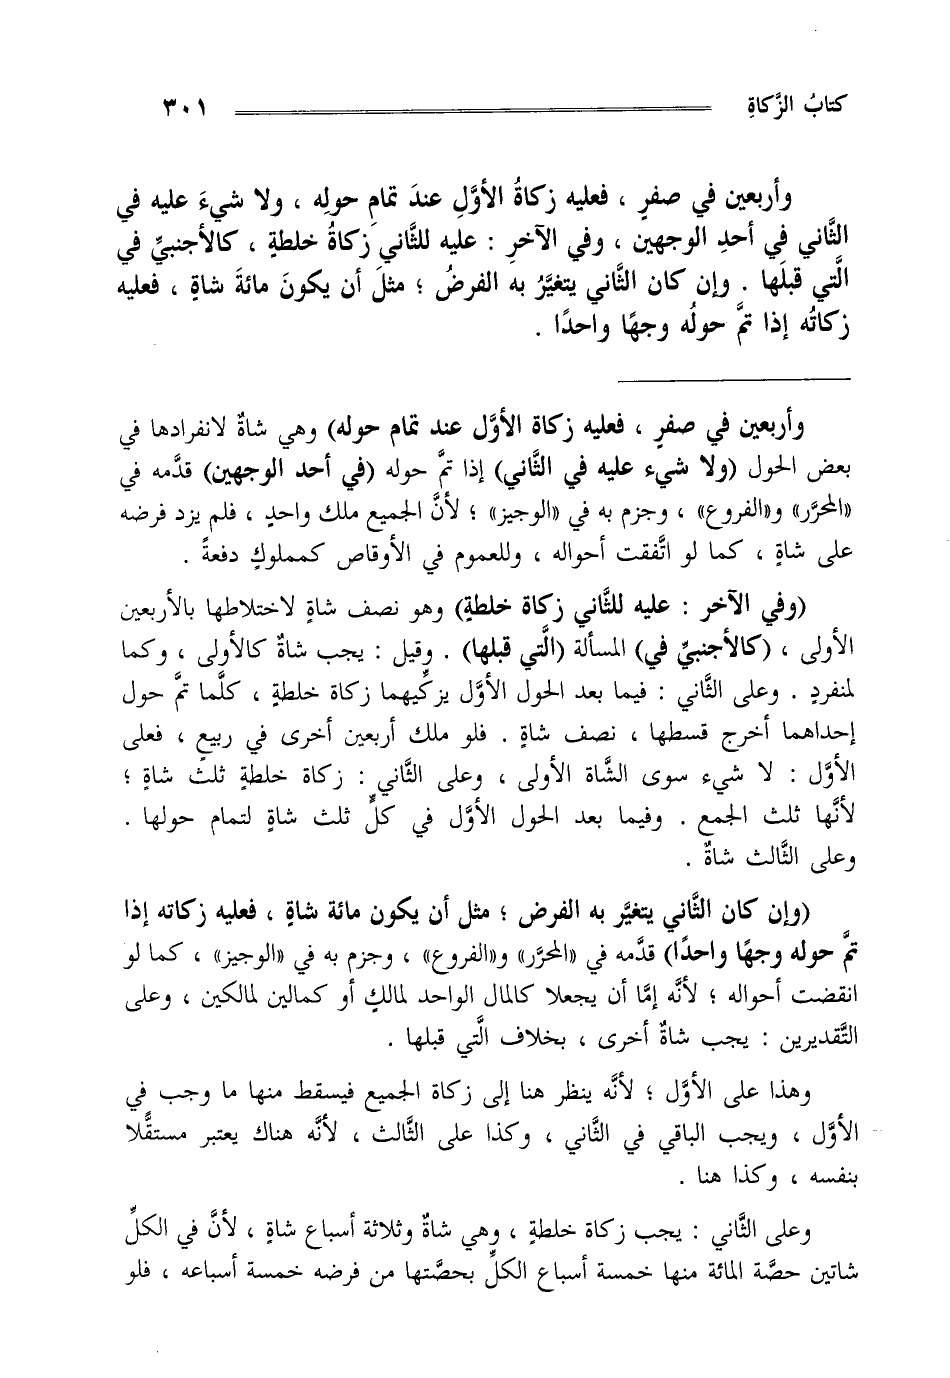 كتابُ الزَّكاةِ ٣٠١
وأربعين في صفرٍ ، فعليه زكاةُ الأوَّلِ عندَ تمامِ حولِه ، ولا شيءَ عليه في
الثَّاني في أحدِ الوجهين ، وفي الآخرِ : عليه للثَّاني زكاةُ خلطةٍ ، كالأجنبيِّ في
الَّتي قبلَها . وإن كان الثَّاني يتغيَّرُ به الفرضُ ؛ مثلَ أن يكونَ مائةَ شاةٍ ، فعليه
زكاتُه إذا تمَّ حولُه وجهًا واحدًا .
وأربعين في صفرٍ ، فعليه زكاة الأوَّل عند تمام حوله) وهي شاةٌ لانفرادها في
بعض الحول (ولا شيء عليه في الثَّاني) إذا تمَّ حوله (في أحد الوجهين) قدَّمه في
«المحرَّر» و«الفروع» ، وجزم به في «الوجيز» ؛ لأنَّ الجميع ملك واحدٍ ، فلم يزد فرضه
على شاةٍ ، كما لو اتَّفقت أحواله ، وللعموم في الأوقاص كمملوكٍ دفعةً .
(وفي الآخر : عليه للثَّاني زكاة خلطةٍ) وهو نصف شاةٍ لاختلاطها بالأربعين
الأولى ، (كالأجنبيِّ في) المسألة (الَّتي قبلها) . وقيل : يجب شاةٌ كالأولى ، وكما
لمنفردٍ . وعلى الثَّاني : فيما بعد الحول الأوَّل يزكِّيهما زكاة خلطةٍ ، كلَّما تمَّ حول
إحداهما أخرج قسطها ، نصف شاةٍ . فلو ملك أربعين أخرى في ربيعٍ ، فعلى
الأوَّل : لا شيء سوى الشَّاة الأولى ، وعلى الثَّاني : زكاة خلطةٍ ثلث شاةٍ ؛
لأنَّها ثلث الجمع . وفيما بعد الحول الأوَّل في كلٍّ ثلث شاةٍ لتمام حولها .
وعلى الثَّالث شاةٌ .
(وإن كان الثَّاني يتغيَّر به الفرض ؛ مثل أن يكون مائة شاةٍ ، فعليه زكاته إذا
تمَّ حوله وجهًا واحدًا) قدَّمه في «المحرَّر» و«الفروع» ، وجزم به في «الوجيز» ، كما لو
انقضت أحواله ؛ لأنَّه إمَّا أن يجعلا كالمال الواحد لمالكٍ أو كمالين لمالكين ، وعلى
التَّقديرين : يجب شاةٌ أخرى ، بخلاف الَّتي قبلها .
وهذا على الأوَّل ؛ لأنَّه ينظر هنا إلى زكاة الجميع فيسقط منها ما وجب في
الأوَّل ، ويجب الباقي في الثَّاني ، وكذا على الثَّالث ، لأنَّه هناك يعتبر مستقًّلا
بنفسه ، وكذا هنا .
وعلى الثَّاني : يجب زكاة خلطةٍ ، وهي شاةٌ وثلاثة أسباع شاةٍ ، لأنَّ في الكلِّ
شاتين حصَّة المائة منها خمسة أسباع الكلِّ بحصَّتها من فرضه خمسة أسباعه ، فلو